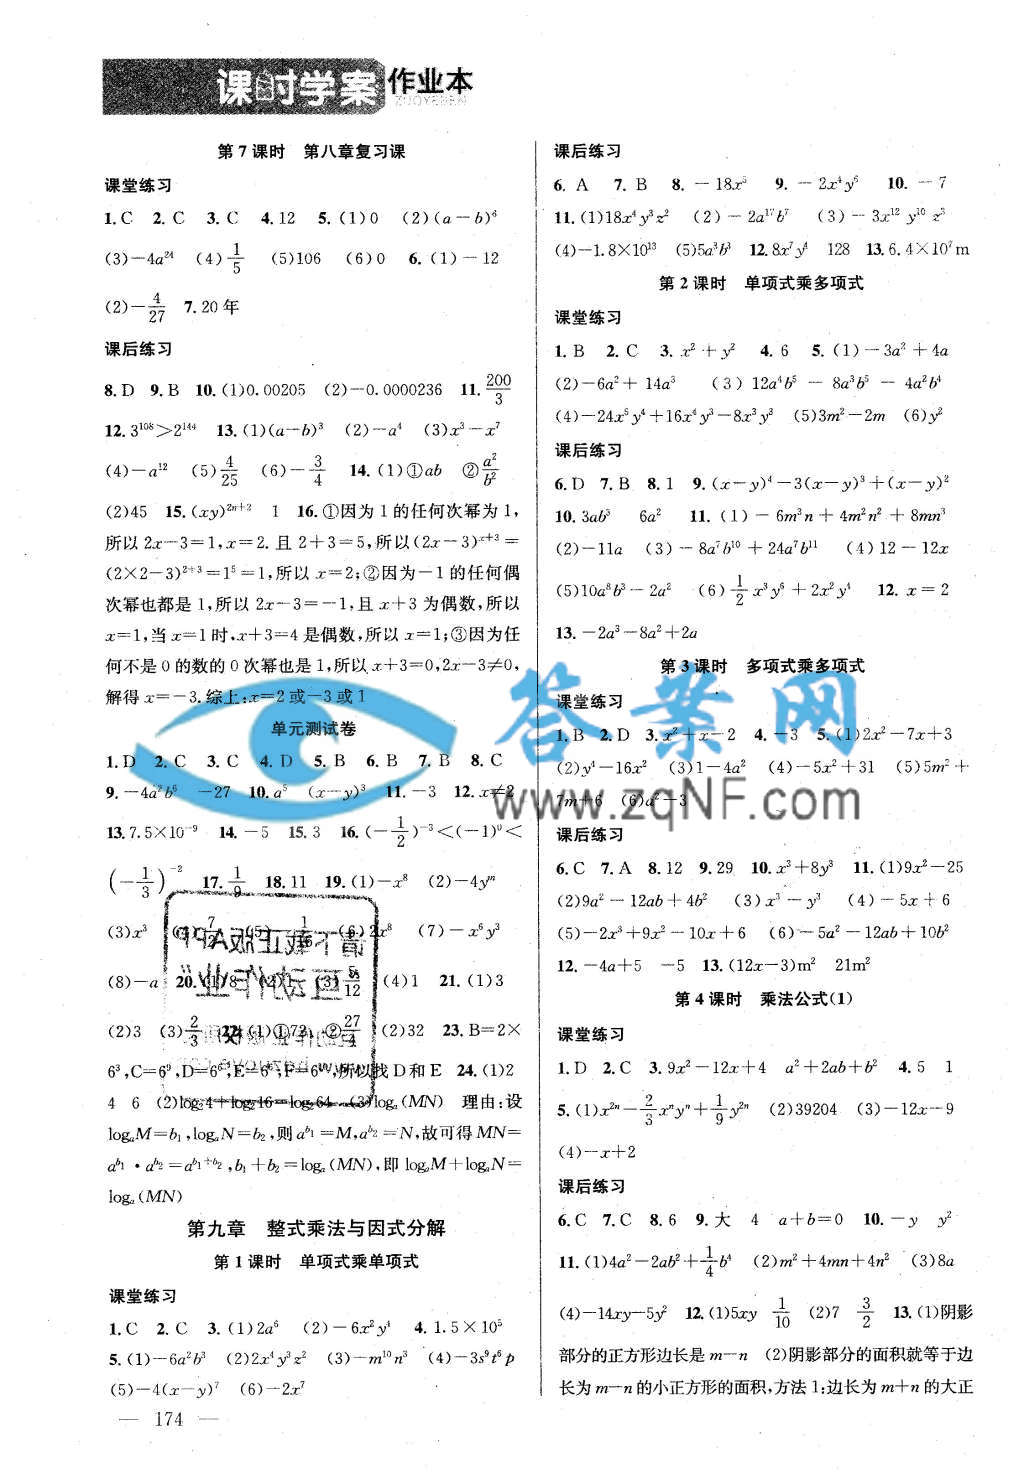 课时学案 作业本
ZUOYEBEN
第7课时　第八章复习课
课堂练习
1. C　2. C　3. C　4. 12　5. (1)0　(2)(a－b)⁶
(3)－4a²⁴　(4) 1/5　(5)106　(6)0　6. (1)－12
(2)－4/27　7. 20年
课后练习
8. D　9. B　10. (1)0.00205　(2)－0.0000236　11. 200/3
12. 3¹⁰⁸>2¹⁴⁴　13. (1)(a－b)³　(2)－a⁴　(3)x³－x⁷
(4)－a¹²　(5) 4/25　(6)－3/4　14. (1)①ab　② a²/b²
(2)45　15. (xy)²ⁿ⁺²　1　16. ①因为1的任何次幂为1,
所以2x－3＝1,x＝2. 且2＋3＝5,所以(2x－3)ˣ⁺³＝
(2×2－3)²⁺³＝1⁵＝1,所以x＝2;②因为－1的任何偶
次幂也都是1,所以2x－3＝－1,且x＋3为偶数,所以
x＝1,当x＝1时,x＋3＝4是偶数,所以x＝1;③因为任
何不是0的数的0次幂也是1,所以x＋3＝0,2x－3≠0,
解得x＝－3.综上:x＝2或－3或1
单元测试卷
1. D　2. C　3. C　4. D　5. B　6. B　7. B　8. C
9. －4a²b⁶　－27　10. a⁵　(x－y)³　11. －3　12. x≠2
13. 7.5×10⁻⁹　14. －5　15. 3　16. (－1/2)⁻³<(－1)⁰<
(－1/3)⁻²　17. 1/9　18. 11　19. (1)－x⁸　(2)－4yᵐ
(3)x³　(6)2x⁸　(7)－x⁶y³
(8)－a　20. (1)8　(3) 5/12　(4)1　21. (1)3
(2)3　(3) 2/3　22. (1)①72　② 27/4　(2)32　23. B＝2×
6³,C＝6⁹,所以找D和E　24. (1)2
4　6　(2)log₂4＋log₂16＝log₂64　(3)logₐ(MN)　理由:设
logₐM＝b₁,logₐN＝b₂,则aᵇ¹＝M,aᵇ²＝N,故可得MN＝
aᵇ¹·aᵇ²＝aᵇ¹⁺ᵇ²,b₁＋b₂＝logₐ(MN),即logₐM＋logₐN＝
logₐ(MN)
第九章　整式乘法与因式分解
第1课时　单项式乘单项式
课堂练习
1. C　2. C　3. (1)2a⁶　(2)－6x²y⁴　4. 1.5×10⁵
5. (1)－6a²b³　(2)2x⁴y³z²　(3)－m¹⁰n³　(4)－3s⁹t⁶p
(5)－4(x－y)⁷　(6)－2x⁷
— 174 —
课后练习
6. A　7. B　8. －18x⁵　9. －2x⁴y⁶　10. －7
11. (1)18x⁴y³z²　(2)－2a¹⁷b⁷　(3)－3x¹²y¹⁰z³
(4)－1.8×10¹³　(5)5a³b³　12. 8x⁷y⁴　128　13. 6.4×10⁷m
第2课时　单项式乘多项式
课堂练习
1. B　2. C　3. x²＋y²　4. 6　5. (1)－3a²＋4a
(2)－6a²＋14a³　(3)12a⁴b⁵－8a³b⁵－4a²b⁴
(4)－24x⁵y⁴＋16x⁴y³－8x³y³　(5)3m²－2m　(6)y²
课后练习
6. D　7. B　8. 1　9. (x－y)⁴－3(x－y)³＋(x－y)²
10. 3ab³　6a²　11. (1)－6m³n＋4m²n²＋8mn³
(2)－11a　(3)－8a⁷b¹⁰＋24a⁷b¹¹　(4)12－12x
(5)10a⁸b³－2a²　(6) 1/2 x³y⁶＋2x²y⁴　12. x＝2
13. －2a³－8a²＋2a
第3课时　多项式乘多项式
课堂练习
1. B　2. D　3. x²＋x－2　4. －3　5. (1)2x²－7x＋3
(2)y⁴－16x²　(3)1－4a²　(4)－5x²＋31　(5)5m²＋
7m＋6　(6)a²－3
课后练习
6. C　7. A　8. 12　9. 29　10. x³＋8y³　11. (1)9x²－25
(2)9a²－12ab＋4b²　(3)x³－y³　(4)－5x＋6
(5)－2x³＋9x²－10x＋6　(6)－5a²－12ab＋10b²
12. －4a＋5　－5　13. (12x－3)m²　21m²
第4课时　乘法公式(1)
课堂练习
1. D　2. C　3. 9x²－12x＋4　a²＋2ab＋b²　4. 5　1
5. (1)x²ⁿ－2/3 xⁿyⁿ＋1/9 y²ⁿ　(2)39204　(3)－12x－9
(4)－x＋2
课后练习
6. C　7. C　8. 6　9. 大　4　a＋b＝0　10. －y　y²
11. (1)4a²－2ab²＋1/4 b⁴　(2)m²＋4mn＋4n²　(3)8a
(4)－14xy－5y²　12. (1)5xy　1/10　(2)7　3/2　13. (1)阴影
部分的正方形边长是m－n　(2)阴影部分的面积就等于边
长为m－n的小正方形的面积,方法1:边长为m＋n的大正
答案网
www.zqNF.com